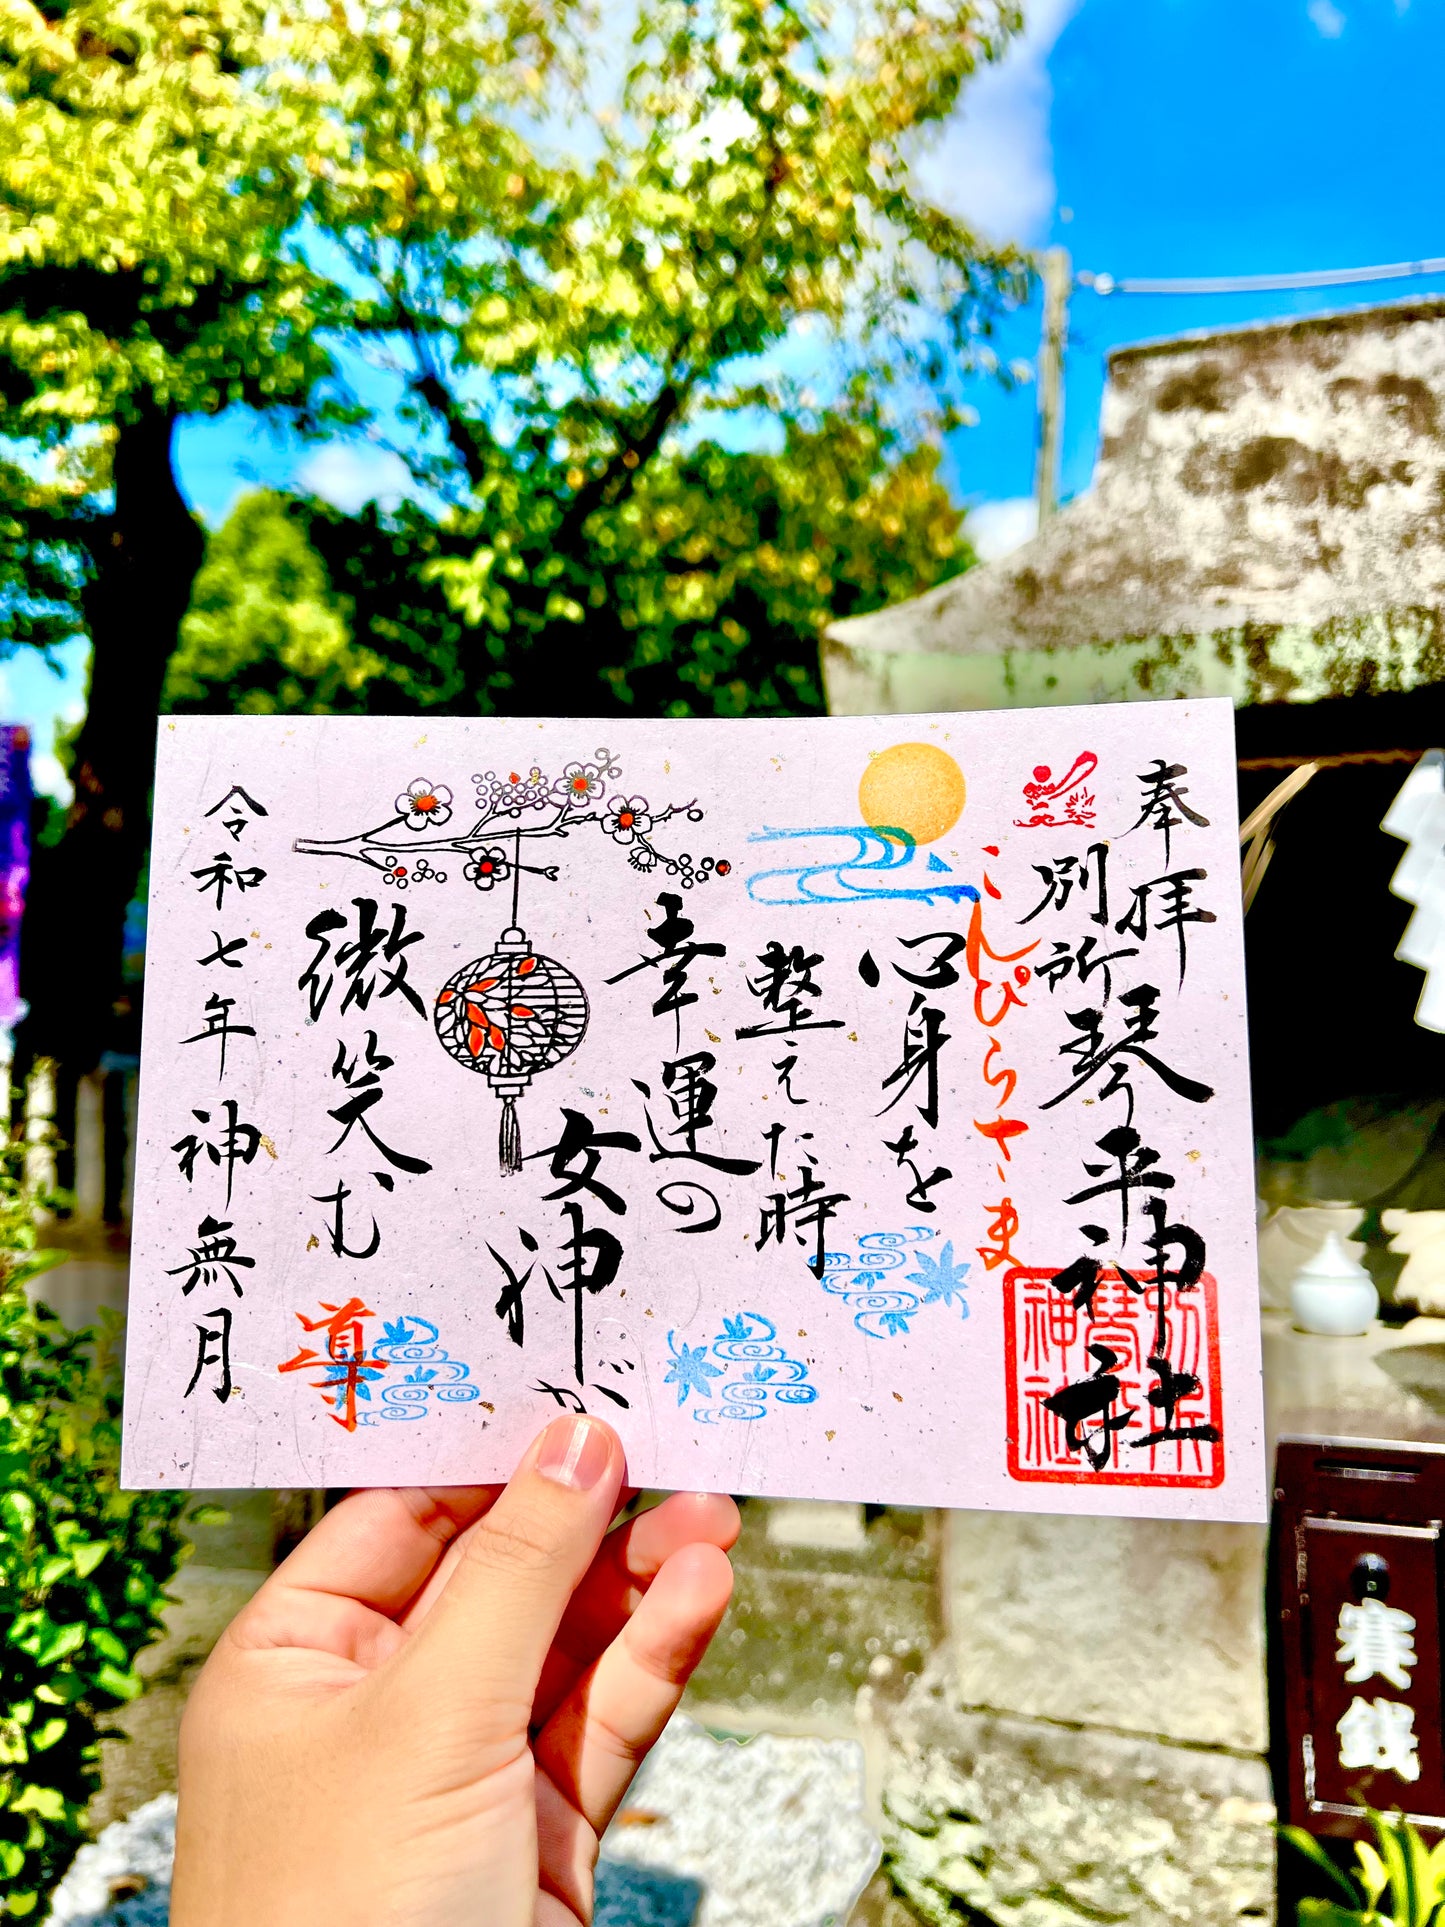 奉拝
別所琴平神社
こんぴらさま
心身を
整えた時
幸運の
女神が
微笑む
導
令和七年神無月
賽銭